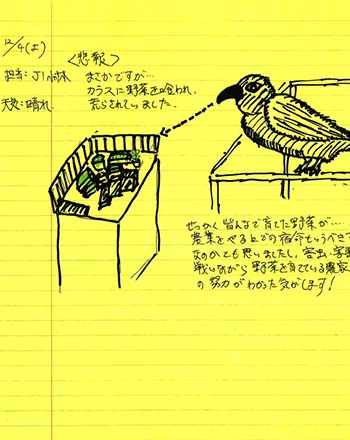 12/4(土)
〈悲報〉
担当: 小林
まさかですが…
カラスに野菜を喰われ、
天気: 晴れ
荒らされていました。
せっかく皆んなで育てた野菜が……
農業をやる上での宿命というべき
なのかとも思いましたし、害虫、害
戦いながら野菜を育てている農家
の努力がわかった気がします!